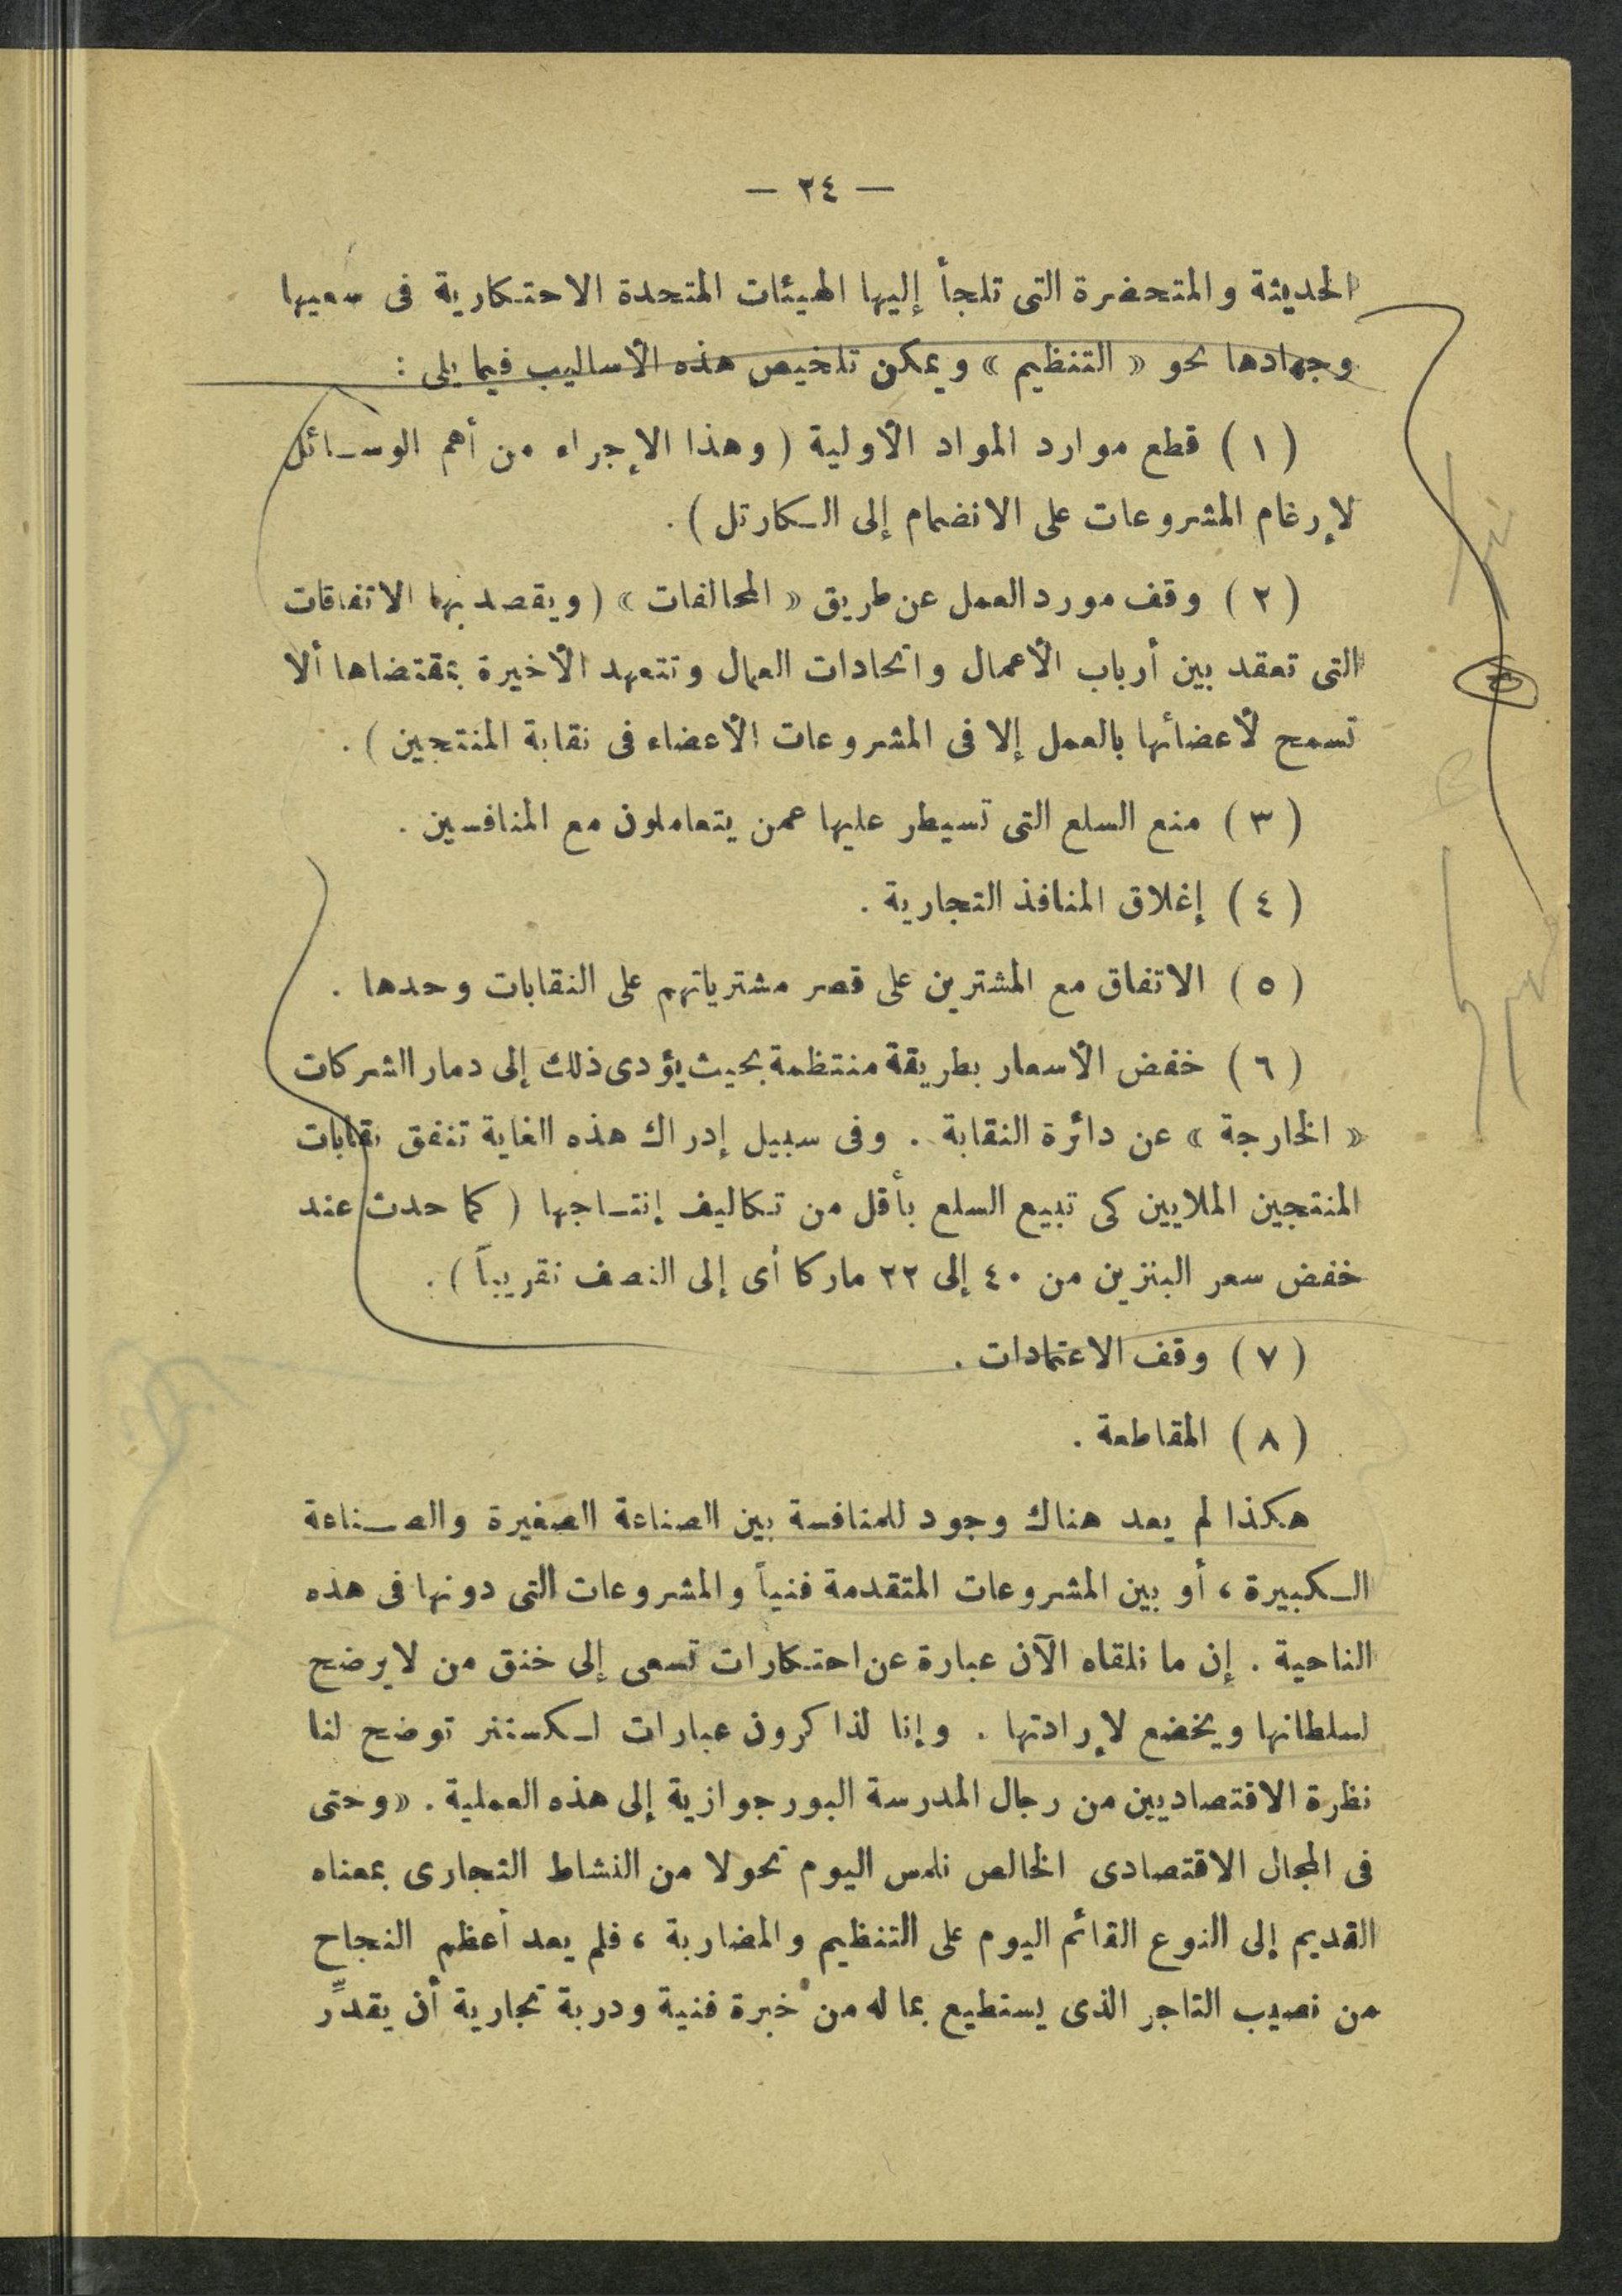 — ٢٤ —
الحديثة والمتحضرة التى تلجأ إليها الهيئات المتحدة الاحتكارية فى سعيها
وجهادها نحو « التنظيم » ويمكن تلخيص هذه الأساليب فيما يلى :
( ١ ) قطع موارد المواد الأولية ( وهذا الإجراء من أهم الوسائل
لإرغام المشروعات على الانضمام إلى الكارتل ) .
( ٢ ) وقف مورد العمل عن طريق « المحالفات » ( ويقصد بها الاتفاقات
التى تعقد بين أرباب الأعمال واتحادات العمال وتتعهد الأخيرة بمقتضاها ألا
تسمح لأعضائها بالعمل إلا فى المشروعات الأعضاء فى نقابة المنتجين ) .
( ٣ ) منع السلع التى تسيطر عليها عمن يتعاملون مع المنافسين .
( ٤ ) إغلاق المنافذ التجارية .
( ٥ ) الاتفاق مع المشترين على قصر مشترياتهم على النقابات وحدها .
( ٦ ) خفض الأسعار بطريقة منتظمة بحيث يؤدى ذلك إلى دمار الشركات
« الخارجة » عن دائرة النقابة . وفى سبيل إدراك هذه الغاية تنفق نقابات
المنتجين الملايين كى تبيع السلع بأقل من تكاليف إنتاجها ( كما حدث عند
خفض سعر البنزين من ٤٠ إلى ٢٢ ماركا أى إلى النصف تقريباً ) .
( ٧ ) وقف الاعتمادات .
( ٨ ) المقاطعة .
هكذا لم يعد هناك وجود للمنافسة بين الصناعة الصغيرة والصناعة
الكبيرة ، أو بين المشروعات المتقدمة فنياً والمشروعات التى دونها فى هذه
الناحية . إن ما نلقاه الآن عبارة عن احتكارات تسعى إلى خنق من لا يرضح
لسلطانها ويخضع لإرادتها . وإنا لذاكرون عبارات لكستنر توضح لنا
نظرة الاقتصاديين من رجال المدرسة البورجوازية إلى هذه العملية . « وحتى
فى المجال الاقتصادى الخالص نلمس اليوم تحولا من النشاط التجارى بمعناه
القديم إلى النوع القائم اليوم على التنظيم والمضاربة ، فلم يعد أعظم النجاح
من نصيب التاجر الذى يستطيع بما له من خبرة فنية ودربة تجارية أن يقدِّر